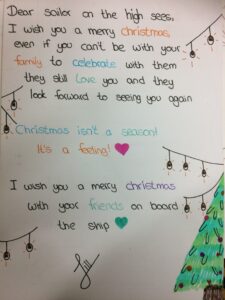 Dear sailor on the high sees,
I wish you a merry christmas,
even if you can't be with your
family to celebrate with them
they still love you and they
look forward to seeing you again
Christmas isn't a season!
It's a feeling!
I wish you a merry christmas
with your friends on board
the ship